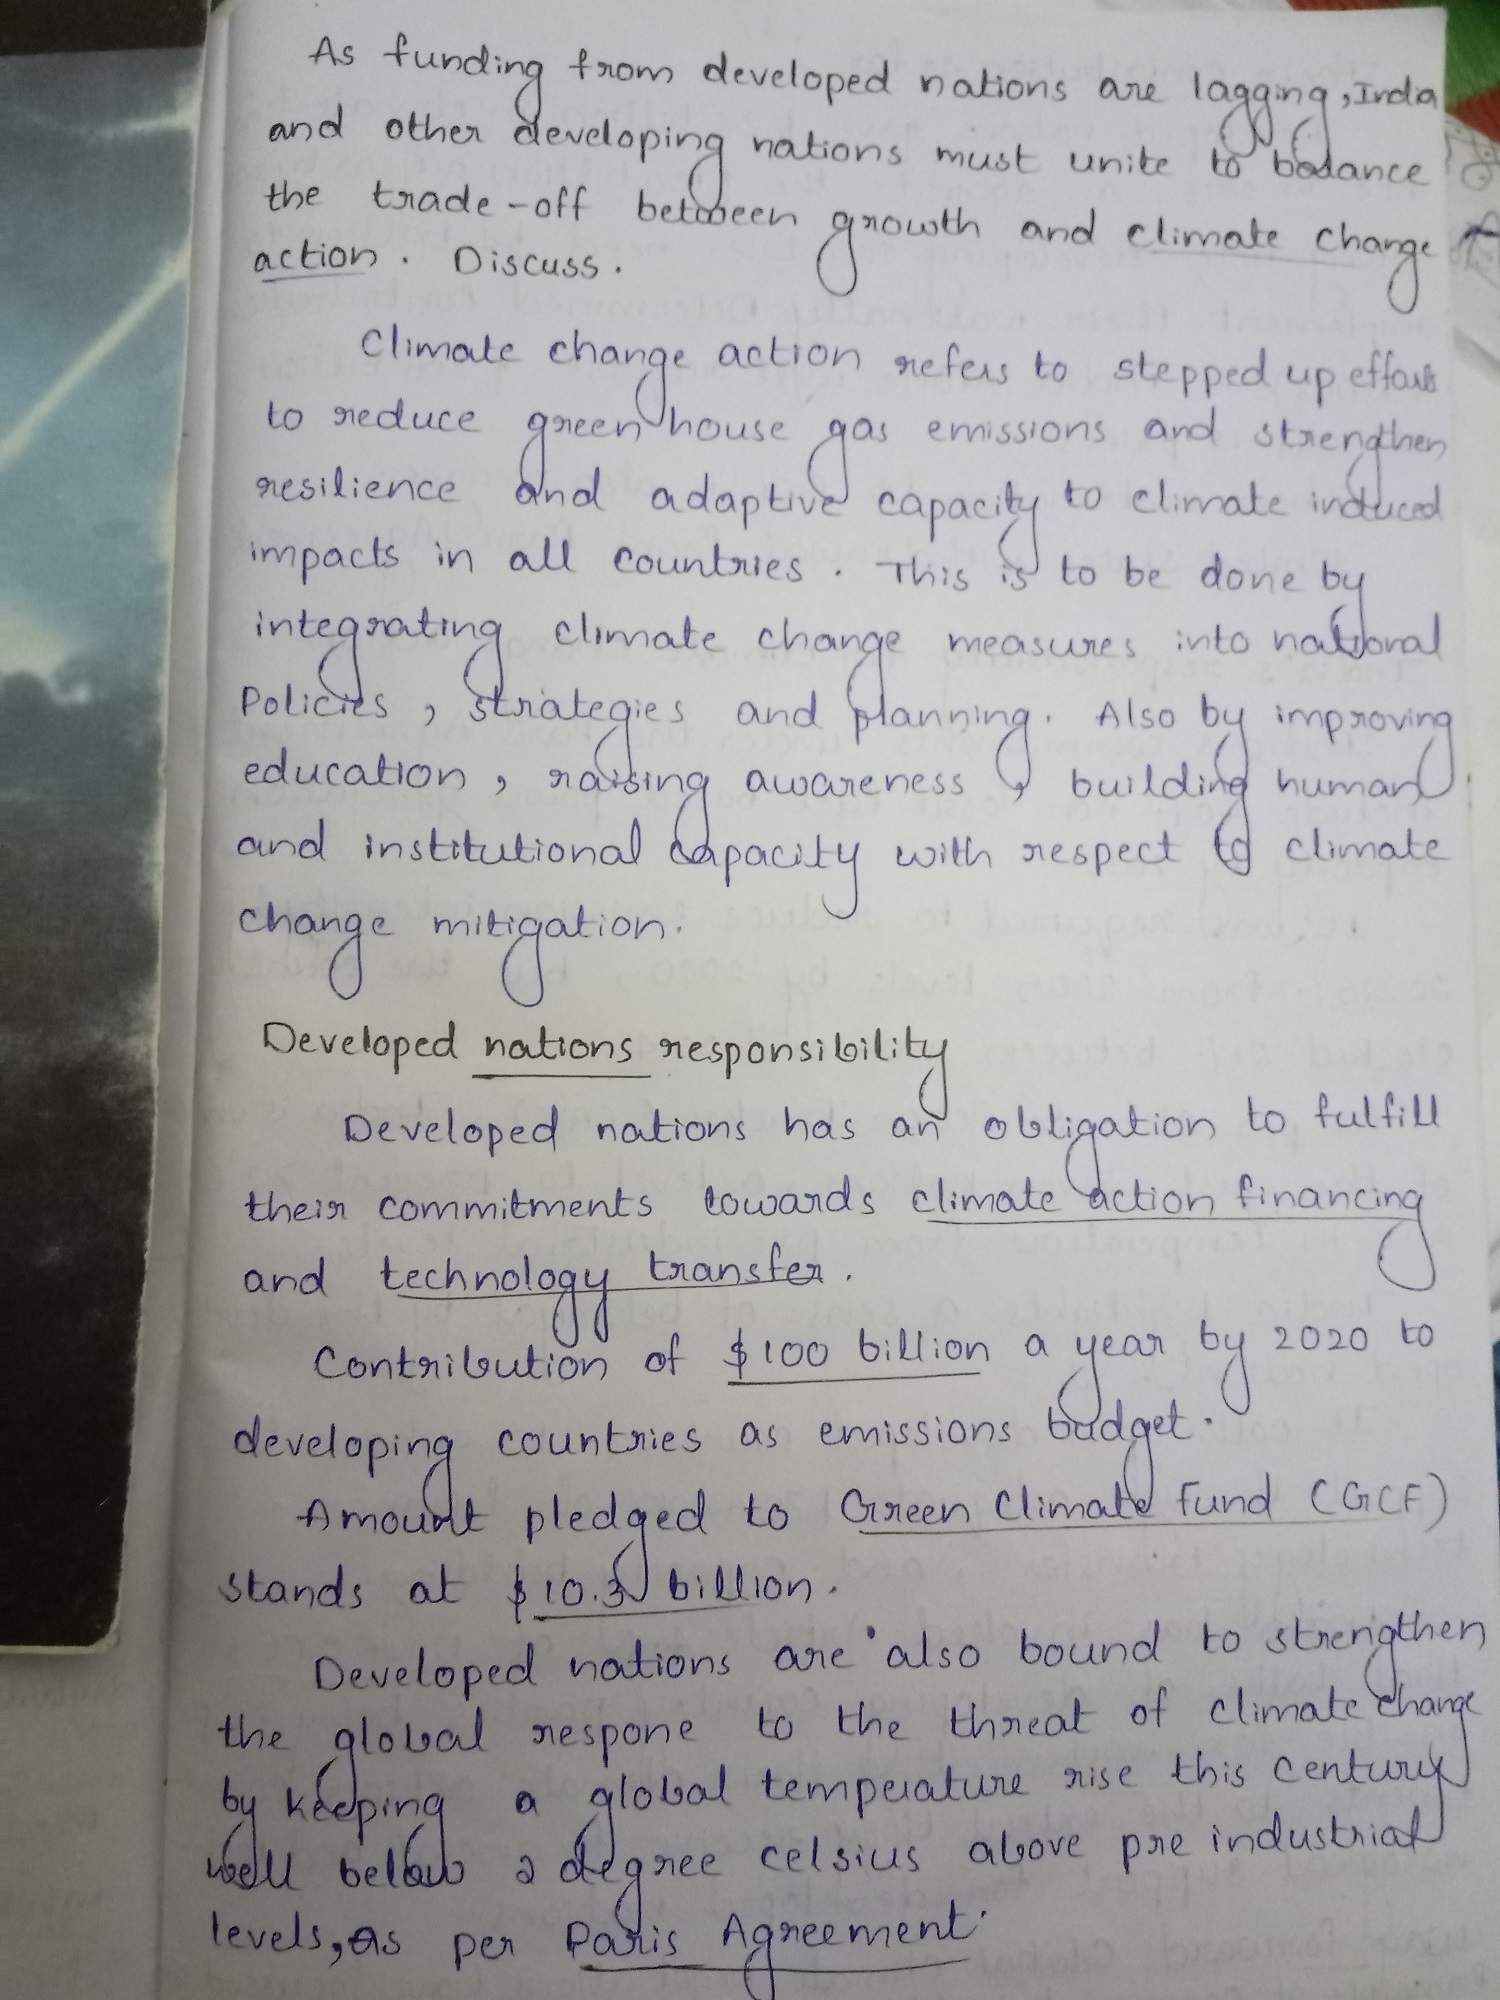 As funding from developed nations are lagging, India
and other developing nations must unite to balance
the trade-off between growth and climate change
action. Discuss.
Climate change action refers to stepped up efforts
to reduce green house gas emissions and strengthen
resilience and adaptive capacity to climate induced
impacts in all countries. This is to be done by
integrating climate change measures into national
Policies, strategies and planning. Also by improving
education, raising awareness, building human
and institutional capacity with respect to climate
change mitigation.
Developed nations responsibility
Developed nations has an obligation to fulfill
their commitments towards climate action financing
and technology transfer.
Contribution of $100 billion a year by 2020 to
developing countries as emissions budget.
Amount pledged to Green Climate Fund (GCF)
stands at $10.3 billion.
Developed nations are also bound to strengthen
the global respone to the threat of climate change
by keeping a global temperature rise this century
well below 2 degree celsius above pre industrial
levels, as per Paris Agreement.